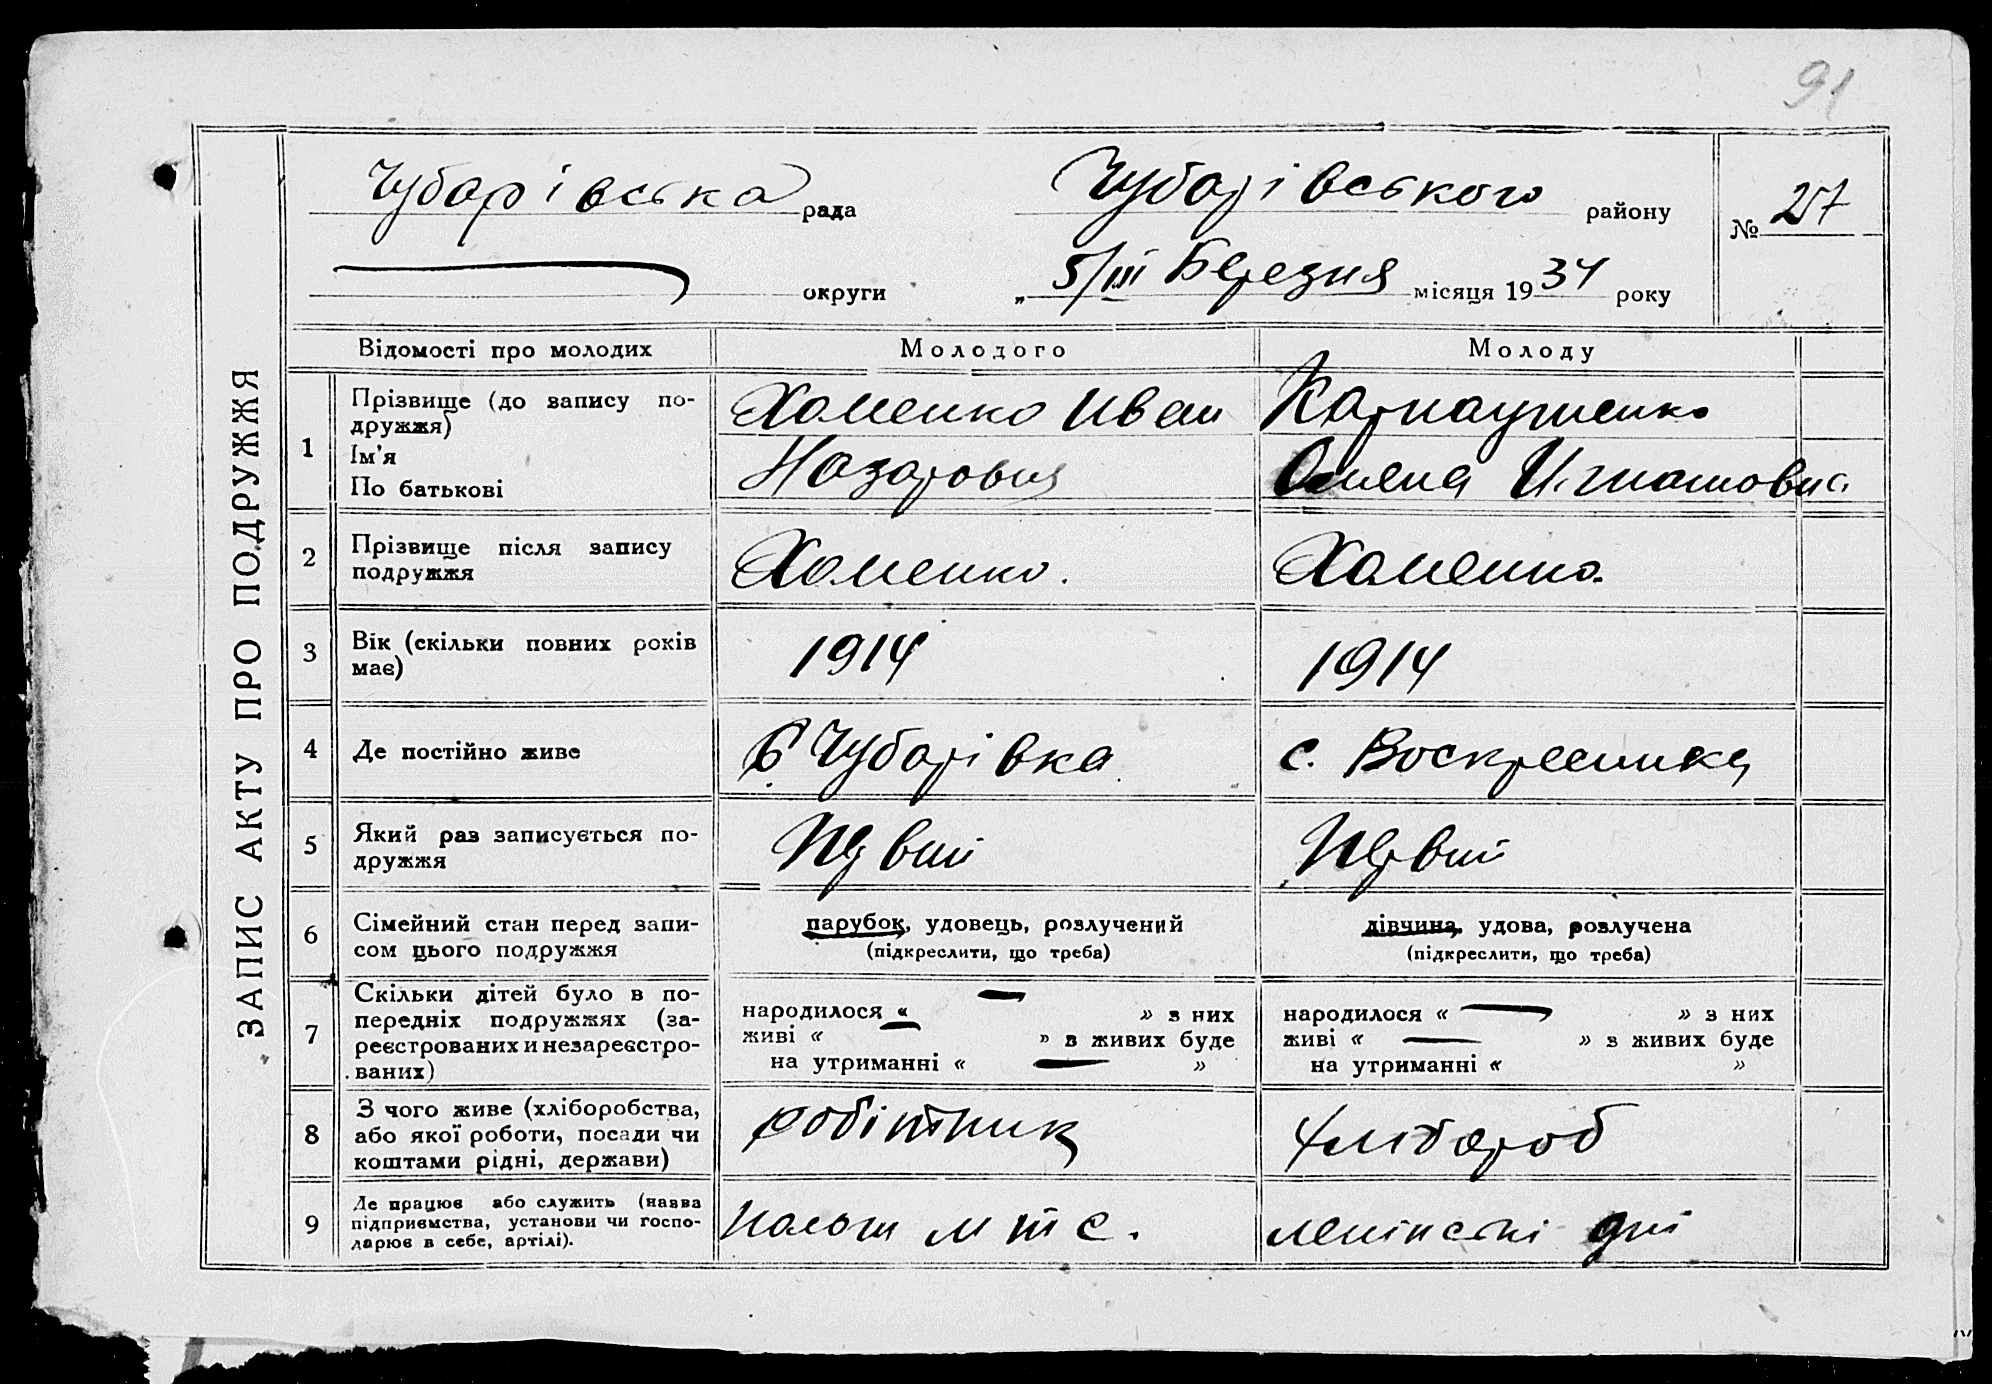 91
Чубарівська рада Чубарівського району № 257
округи „ 5/III Березня місяця 1934 року
ЗАПИС АКТУ ПРО ПОДРУЖЖЯ
Відомості про молодих Молодого Молоду
1
Прізвище (до запису по-
дружжя)
Ім'я
По батькові
Хоменко Иван
Назарович
Карнаушенко
Олена Игнатовна
2
Прізвище після запису
подружжя
Хоменко.
Хоменко.
3
Вік (скільки повних років
має)
1914
1914
4
Де постійно живе
с Чубарівка
с. Воскресенка
5
Який раз записується по-
дружжя
Первий
Первий
6
Сімейний стан перед запи-
сом цього подружжя
парубок, удовець, розлучений
(підкреслити, що треба)
дівчина, удова, розлучена
(підкреслити, що треба)
7
Скільки дітей було в по-
передніх подружжях (за-
реєстрованих и незареєстро-
ваних)
народилося « — » з них
живі « — » з живих буде
на утриманні « — »
народилося « — » з них
живі « — » з живих буде
на утриманні « »
8
З чого живе (хліборобства,
або якої роботи, посади чи
коштами рідні, держави)
робітник
хлібороб
9
Де працює або служить (назва
підприємства, установи чи госпо-
дарює в себе, артілі).
мтс.
ленінські дні